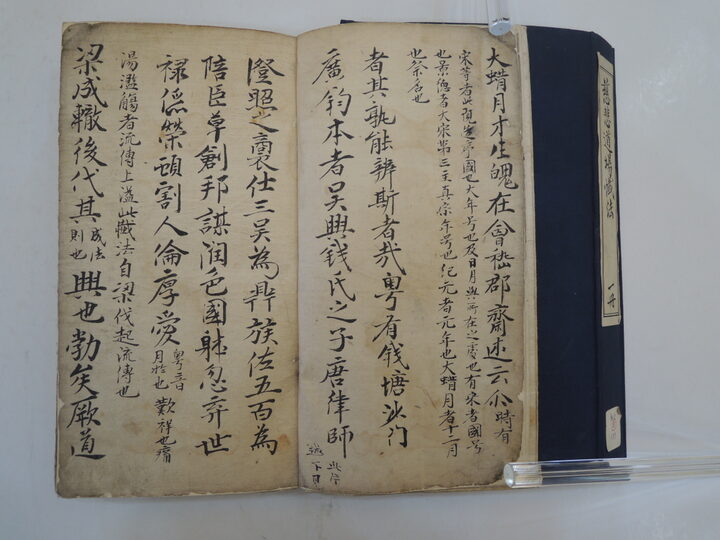 慈悲道場懺法 一冊
大蜡月才生魄在會嵇郡齋述云尒時有
宋等者此預定序國也大年号也及日月與所在之處也有宋者國号
也景德者大宋第三主真宗年号也紀元者元年也大蜡月者十二月
也祭名也
者其孰能辨斯者哉粤有钱塘沙门
廣鈞本者吳興钱氏之子唐律師
澄照之裔仕三吴為鼎族佐五百為
陪臣草創邦謀润色國躰忽弃世
禄俻榮頑割人倫厚愛 粤音月於也 歎祥也
湯濫觴者流傳上溢此懺法自梁代起流傳也
梁成轍後代其 成法則也 興也勃矣厥道